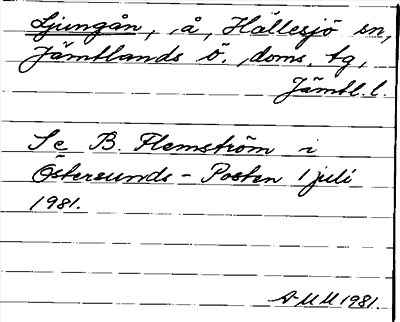 Ljungån, å, Hällesjö sn,
Jämtlands ö. doms. tg,
Jämtl. l.
Se B. Flemström i
Östersunds-Posten 1 juli
1981.
AMM 1981.